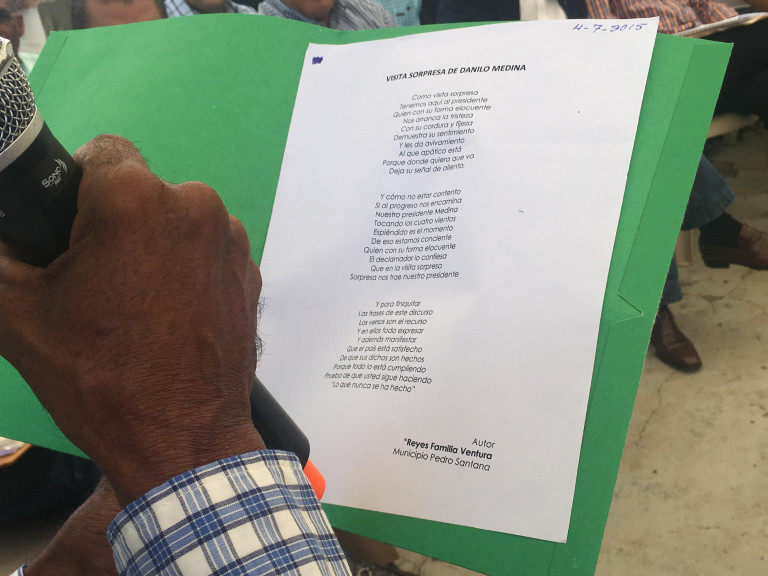 4-7-2015
VISITA SORPRESA DE DANILO MEDINA
Como visita sorpresa
Tenemos aquí al presidente
Quien con su forma elocuente
Nos arranca la tristeza
Con su cordura y fijeza
Demuestra su sentimiento
Y les da avivamiento
Al que apático está
Porque donde quiera que va
Deja su señal de aliento.
Y cómo no estar contento
Si al progreso nos encamina
Nuestro presidente Medina
Tocando los cuatro vientos
Espléndido es el momento
De eso estamos conciente
Quien con su forma elocuente
El declamador lo confiesa
Que en la visita sorpresa
Sorpresa nos trae nuestro presidente
Y para finiquitar
Las frases de este discurso
Los versos son el recurso
Y en ellos todo expresar
Y además manifestar
Que el país está satisfecho
De que sus dichos son hechos
Porque todo lo está cumpliendo
Prueba de que usted sigue haciendo
"Lo que nunca se ha hecho"
Autor
"Reyes Familia Ventura
Municipio Pedro Santana
SONIC